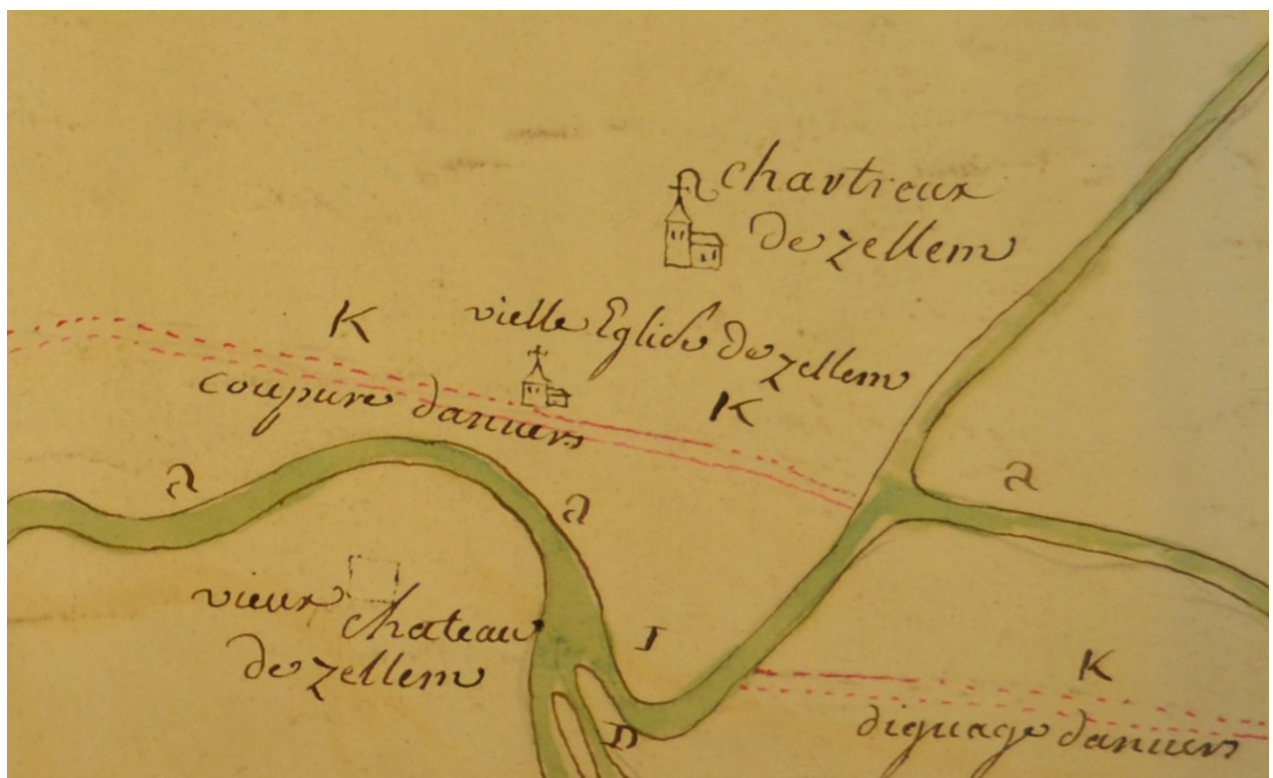 chartreux
de zellem
K
vielle Eglise de zellem
K
coupure danuers
a
a
a
vieux
chateau
de zellem
I
K
D
diguage danuers